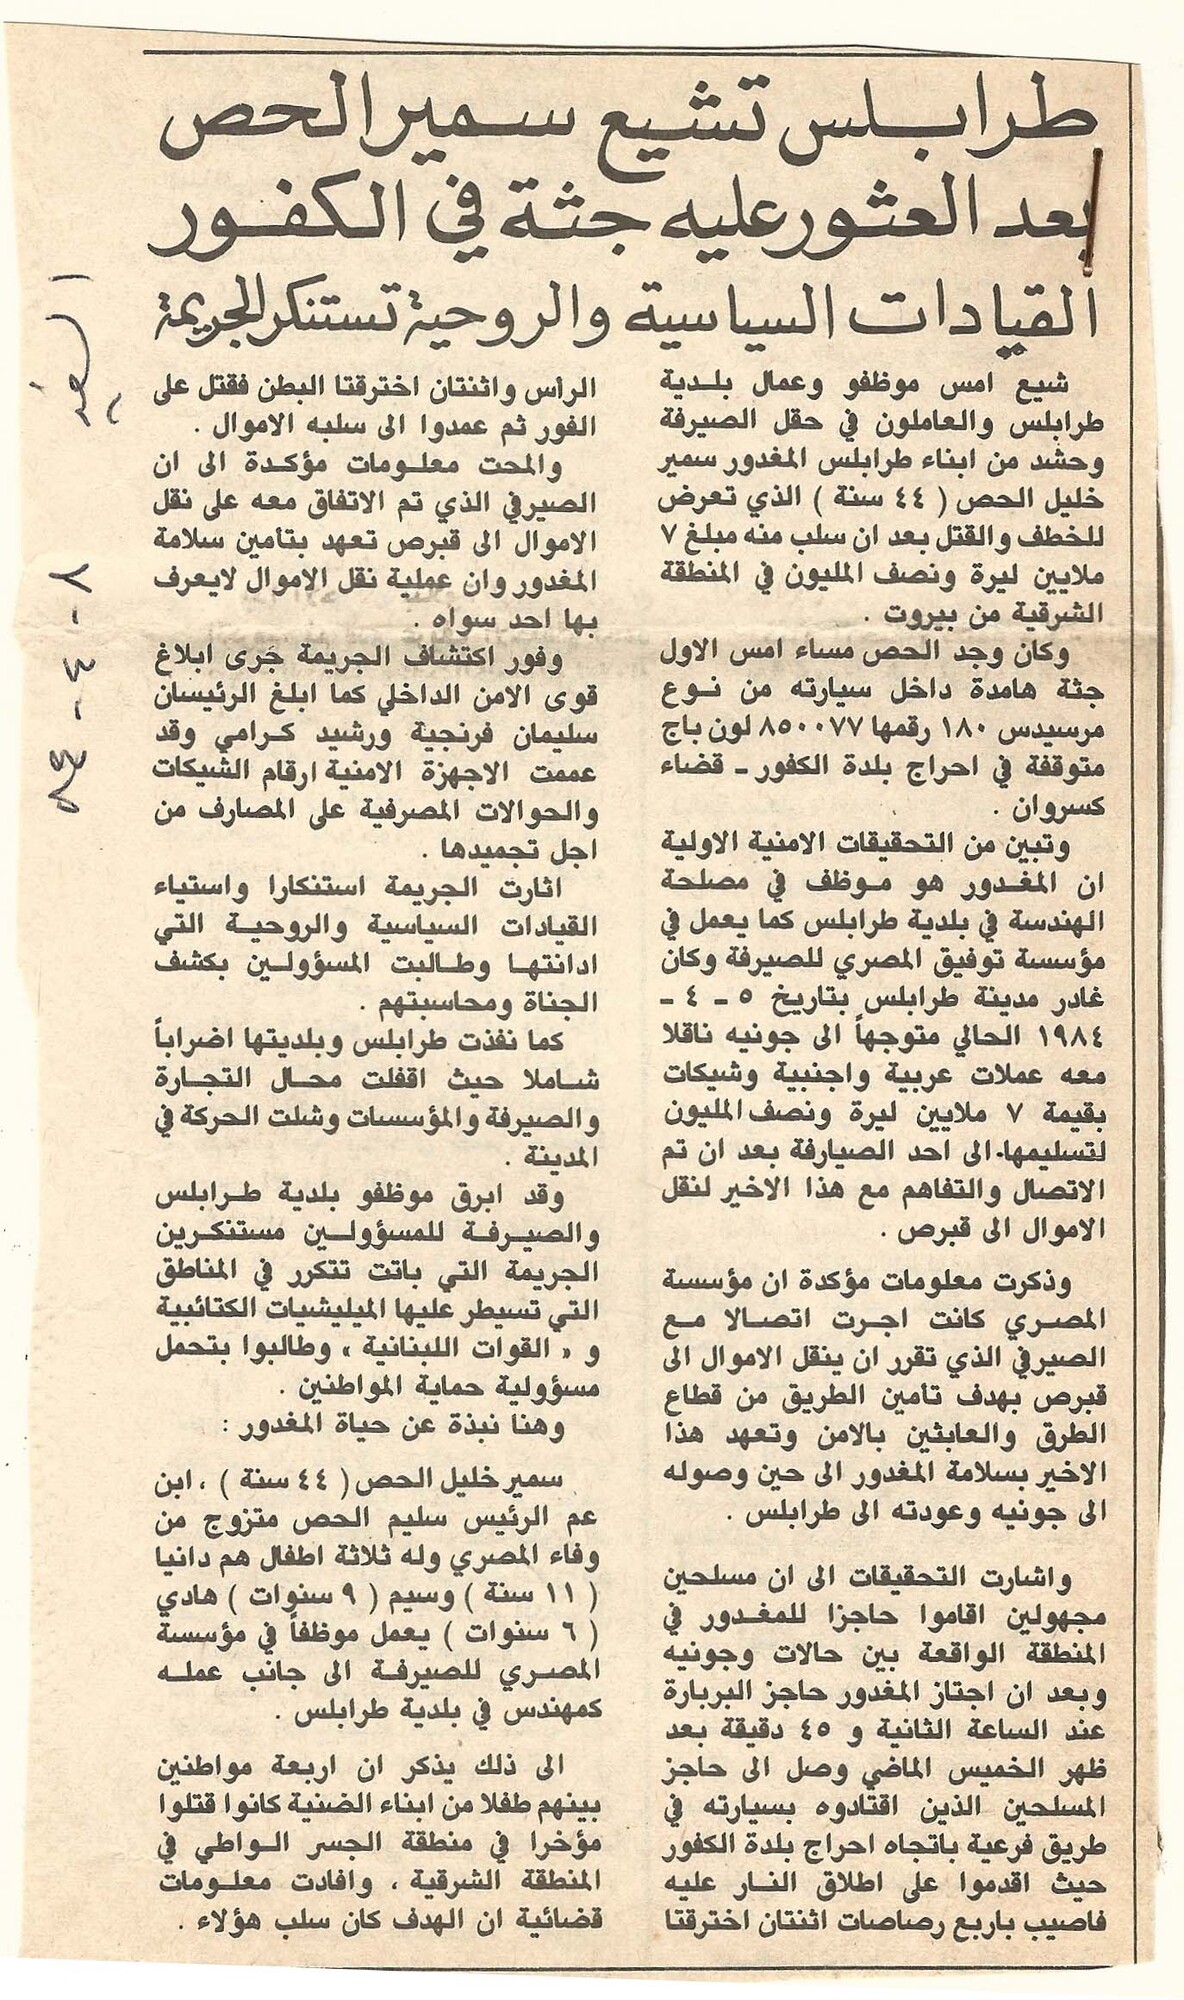 طرابلس تشيع سمير الحص
بعد العثور عليه جثة في الكفور
القيادات السياسية والروحية تستنكر الجريمة
شيع امس موظفو وعمال بلدية
طرابلس والعاملون في حقل الصيرفة
وحشد من ابناء طرابلس المغدور سمير
خليل الحص ( ٤٤ سنة ) الذي تعرض
للخطف والقتل بعد ان سلب منه مبلغ ٧
ملايين ليرة ونصف المليون في المنطقة
الشرقية من بيروت .
وكان وجد الحص مساء امس الاول
جثة هامدة داخل سيارته من نوع
مرسيدس ١٨٠ رقمها ٨٥٠٠٧٧ لون باج
متوقفة في احراج بلدة الكفور ـ قضاء
كسروان .
وتبين من التحقيقات الامنية الاولية
ان المغدور هو موظف في مصلحة
الهندسة في بلدية طرابلس كما يعمل في
مؤسسة توفيق المصري للصيرفة وكان
غادر مدينة طرابلس بتاريخ ٥ ـ ٤ ـ
١٩٨٤ الحالي متوجهاً الى جونيه ناقلا
معه عملات عربية واجنبية وشيكات
بقيمة ٧ ملايين ليرة ونصف المليون
لتسليمها الى احد الصيارفة بعد ان تم
الاتصال والتفاهم مع هذا الاخير لنقل
الاموال الى قبرص .
وذكرت معلومات مؤكدة ان مؤسسة
المصري كانت اجرت اتصالا مع
الصيرفي الذي تقرر ان ينقل الاموال الى
قبرص بهدف تأمين الطريق من قطاع
الطرق والعابثين بالامن وتعهد هذا
الاخير بسلامة المغدور الى حين وصوله
الى جونيه وعودته الى طرابلس .
واشارت التحقيقات الى ان مسلحين
مجهولين اقاموا حاجزا للمغدور في
المنطقة الواقعة بين حالات وجونيه
وبعد ان اجتاز المغدور حاجز البربارة
عند الساعة الثانية و ٤٥ دقيقة بعد
ظهر الخميس الماضي وصل الى حاجز
المسلحين الذين اقتادوه بسيارته في
طريق فرعية باتجاه احراج بلدة الكفور
حيث اقدموا على اطلاق النار عليه
فاصيب باربع رصاصات اثنتان اخترقتا
الرأس واثنتان اخترقتا البطن فقتل على
الفور ثم عمدوا الى سلبه الاموال .
والمحت معلومات مؤكدة الى ان
الصيرفي الذي تم الاتفاق معه على نقل
الاموال الى قبرص تعهد بتأمين سلامة
المغدور وان عملية نقل الاموال لايعرف
بها احد سواه .
وفور اكتشاف الجريمة جَرى ابلاغ
قوى الامن الداخلي كما ابلغ الرئيسان
سليمان فرنجية ورشيد كرامي وقد
عممت الاجهزة الامنية ارقام الشيكات
والحوالات المصرفية على المصارف من
اجل تجميدها .
اثارت الجريمة استنكارا واستياء
القيادات السياسية والروحية التي
ادانتها وطالبت المسؤولين بكشف
الجناة ومحاسبتهم .
كما نفذت طرابلس وبلديتها اضراباً
شاملا حيث اقفلت محال التجارة
والصيرفة والمؤسسات وشلت الحركة في
المدينة .
وقد ابرق موظفو بلدية طرابلس
والصيرفة للمسؤولين مستنكرين
الجريمة التي باتت تتكرر في المناطق
التي تسيطر عليها الميليشيات الكتائبية
و « القوات اللبنانية » وطالبوا بتحمل
مسؤولية حماية المواطنين .
وهنا نبذة عن حياة المغدور :
سمير خليل الحص ( ٤٤ سنة ) ، ابن
عم الرئيس سليم الحص متزوج من
وفاء المصري وله ثلاثة اطفال هم دانيا
( ١١ سنة ) وسيم ( ٩ سنوات ) هادي
( ٦ سنوات ) يعمل موظفاً في مؤسسة
المصري للصيرفة الى جانب عمله
كمهندس في بلدية طرابلس .
الى ذلك يذكر ان اربعة مواطنين
بينهم طفلا من ابناء الضنية كانوا قتلوا
مؤخرا في منطقة الجسر الواطي في
المنطقة الشرقية ، وافادت معلومات
قضائية ان الهدف كان سلب هؤلاء .
السفير
٨ - ٤ - ٨٤